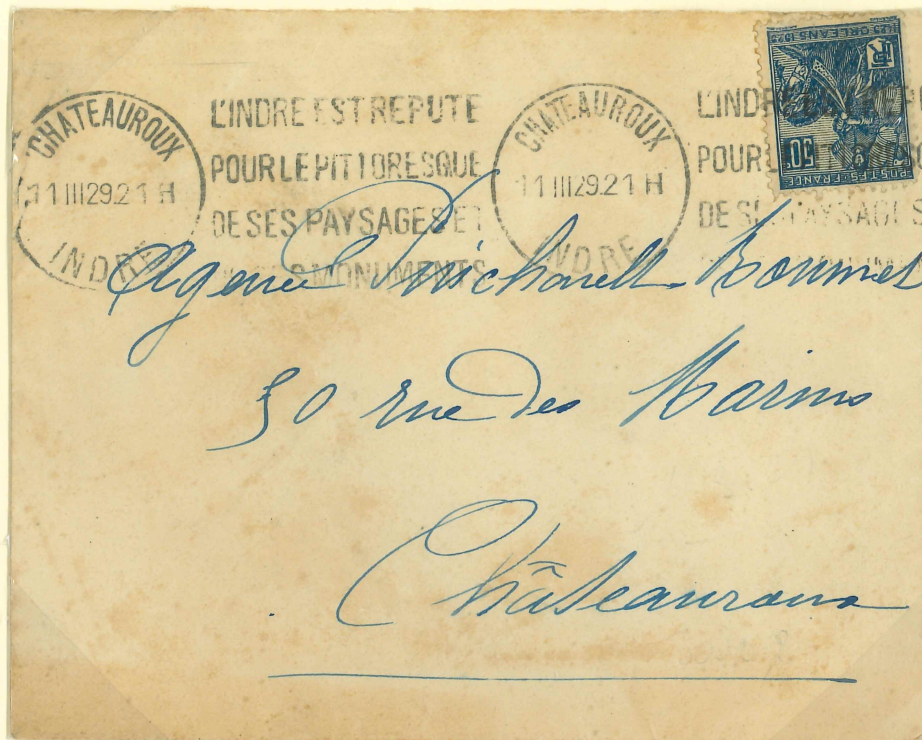 CHATEAUROUX
11 III 29.21 H
INDRE
L'INDRE EST REPUTE
POUR LE PITTORESQUE
DE SES PAYSAGES ET
MONUMENTS
CHATEAUROUX
11 III 29.21 H
INDRE
L'IND
POUR
DE SES PAYSAGES
ORLEANS
RF
50c
POSTES FRANCE
Agence
50 rue des Marins
Châteauroux